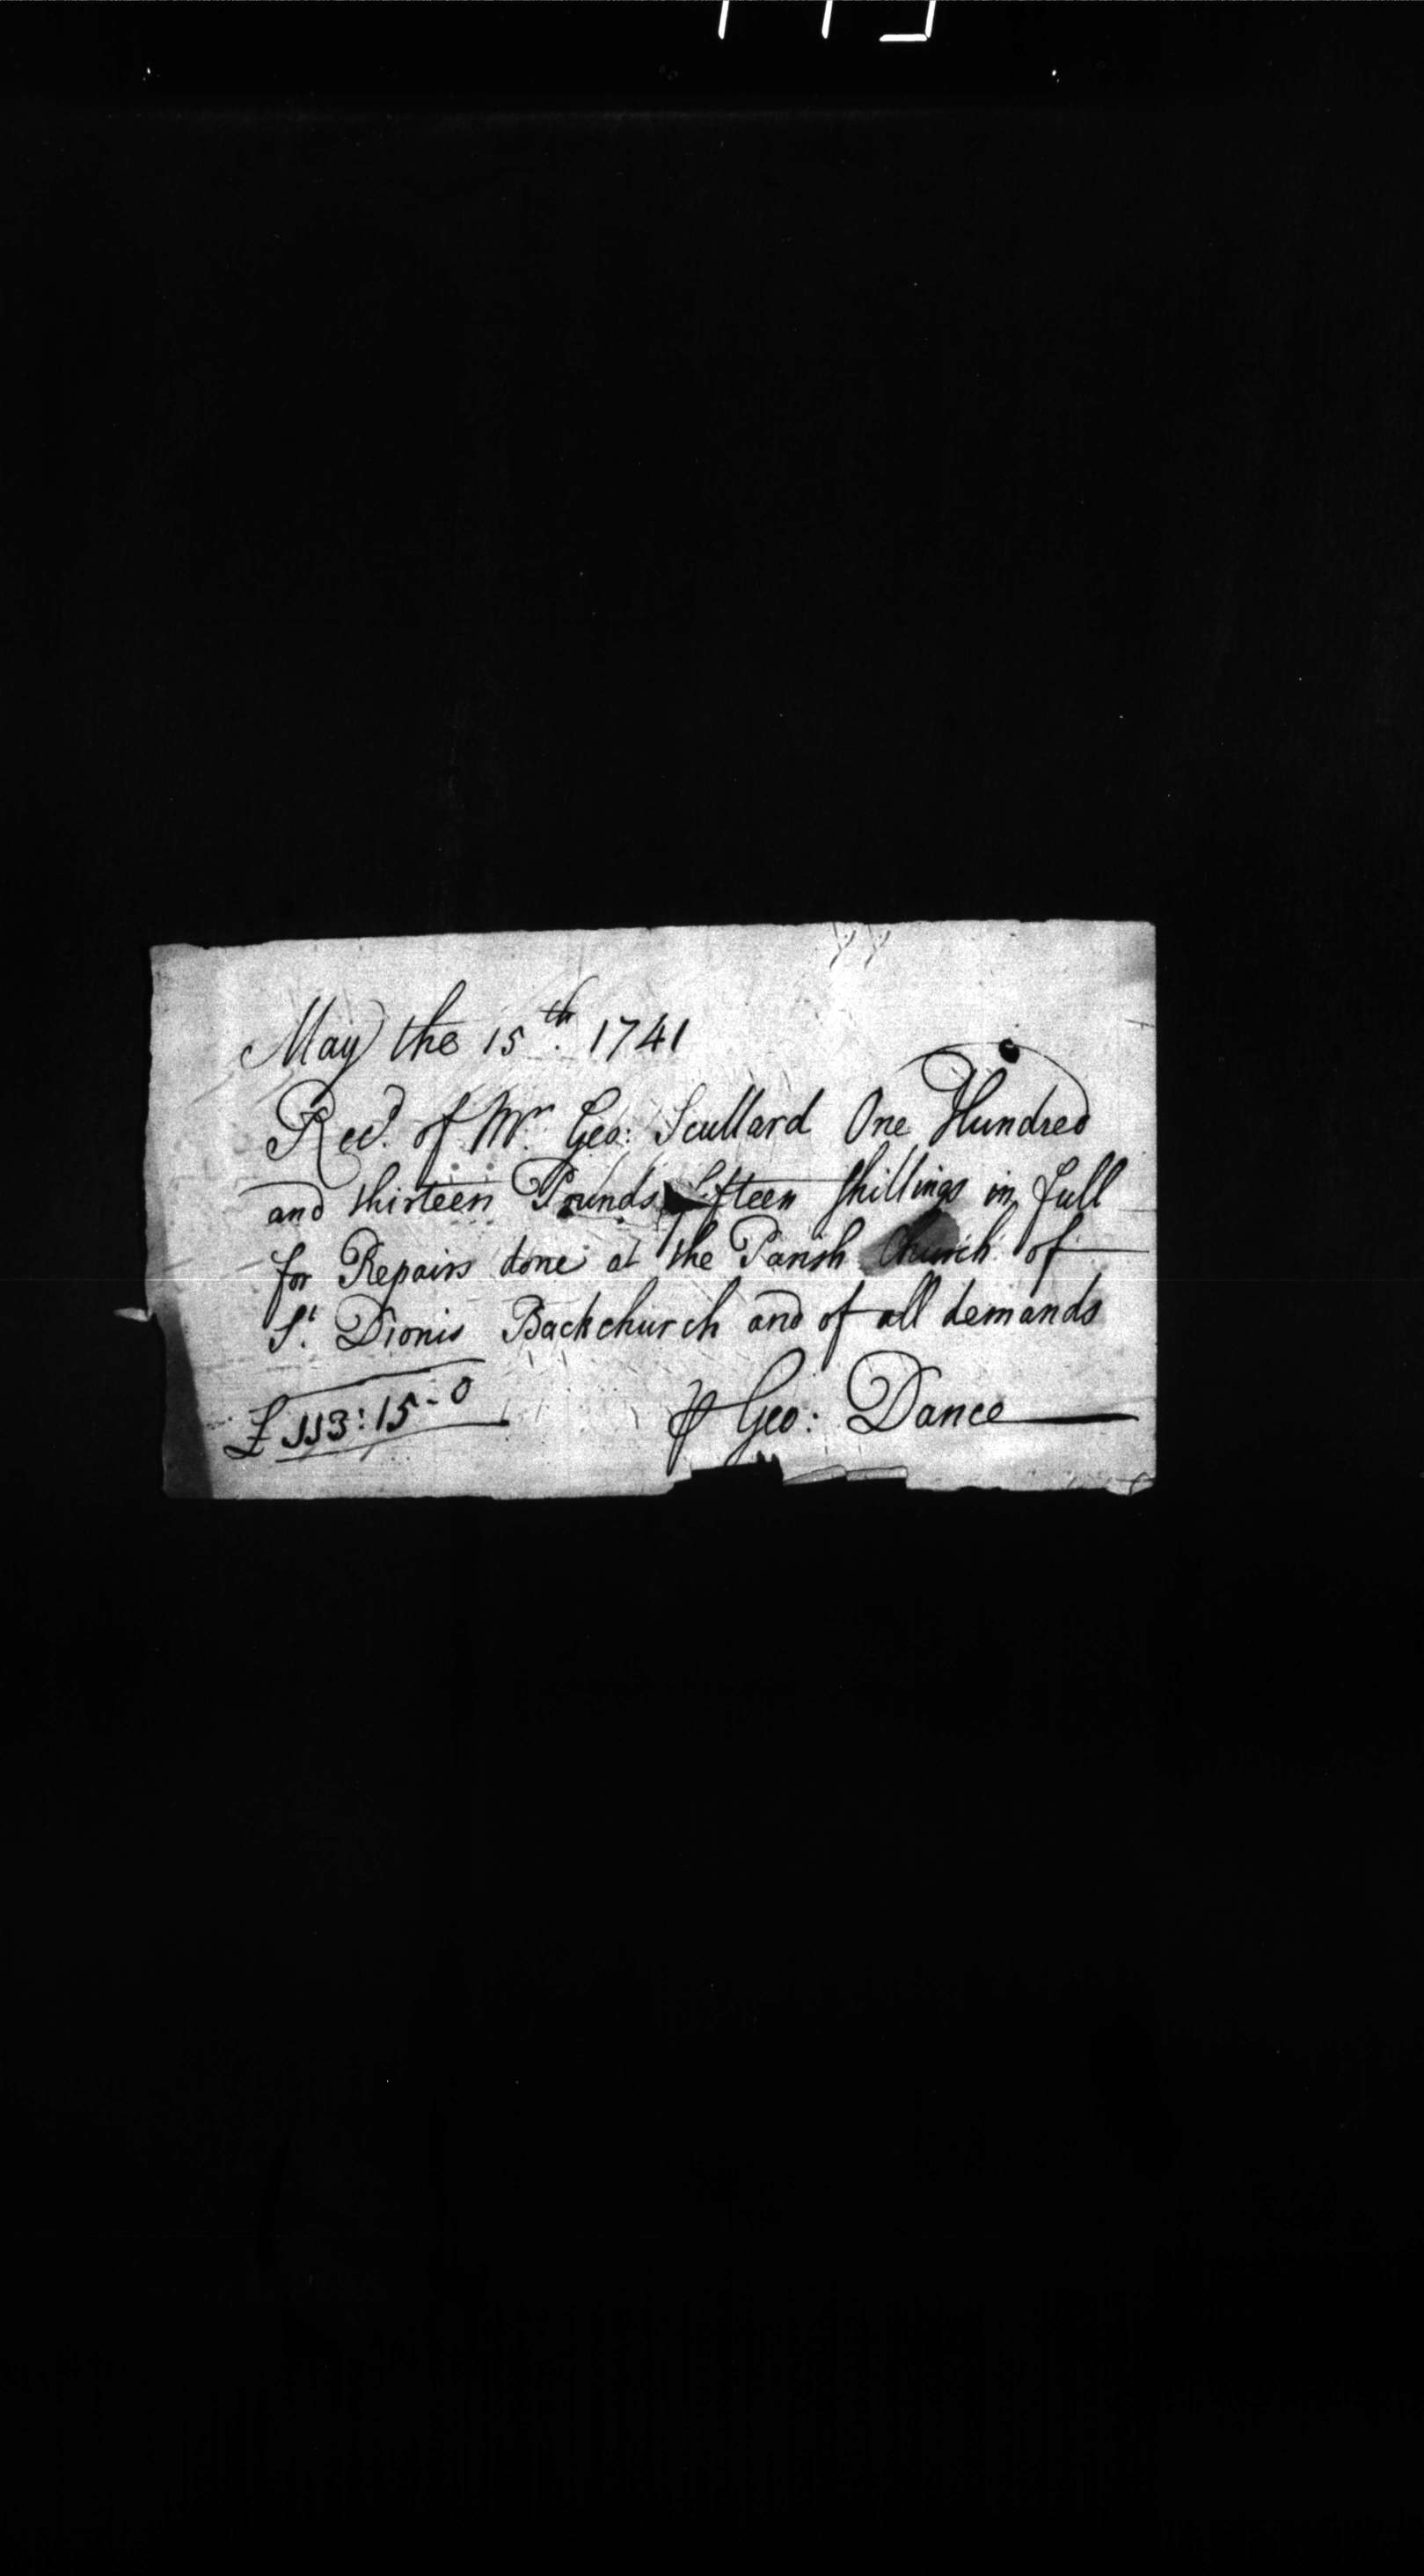 May the 15th. 1741
Recd. of Mr. Geo: Scullard One Hundred
and thirteen Pounds fifteen shillings in full
for Repairs done at the Parish Church of
St. Dionis Backchurch and of all demands
£ 113:15-0
⅌ Geo: Dance